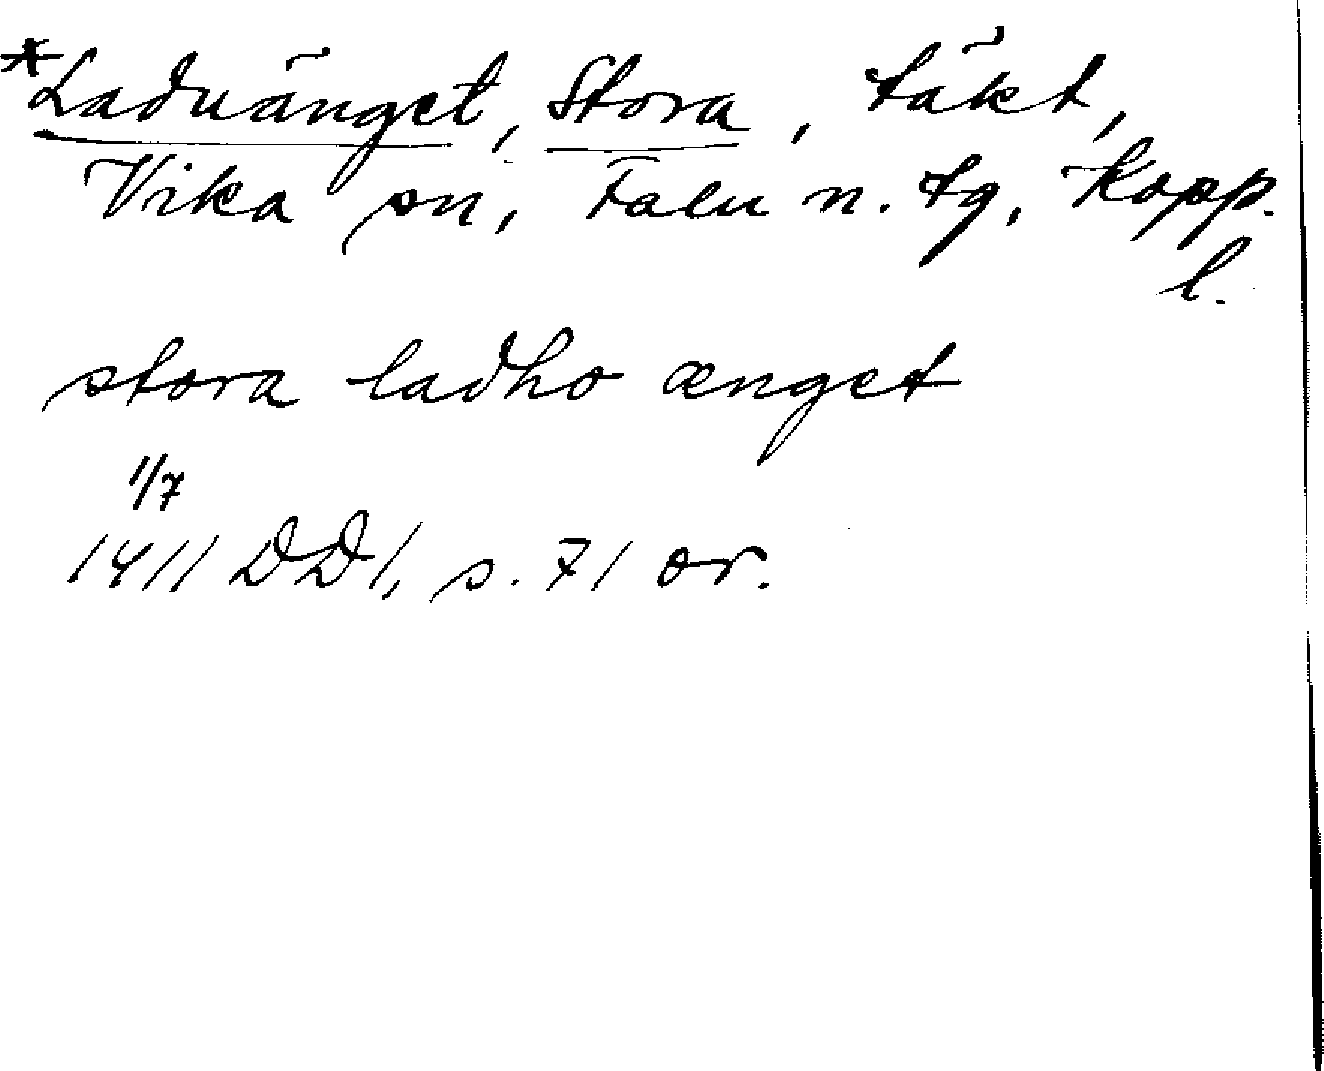 *Laduänget, Stora, täkt,
Vika sn, Falu n. tg, Kopp.
l.
stora ladho ænget
1/7
1411 DD1, s. 71 or.